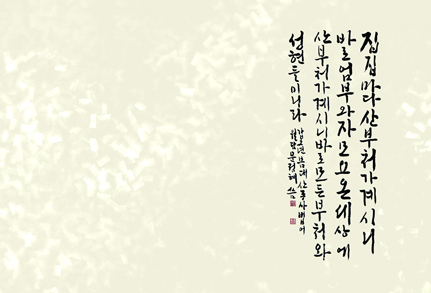 집집마다 산 부처가 계시니
바로 엄부와 자모요 온 세상에
산 부처가 계시니 바로 모든 부처와
성현들이니라